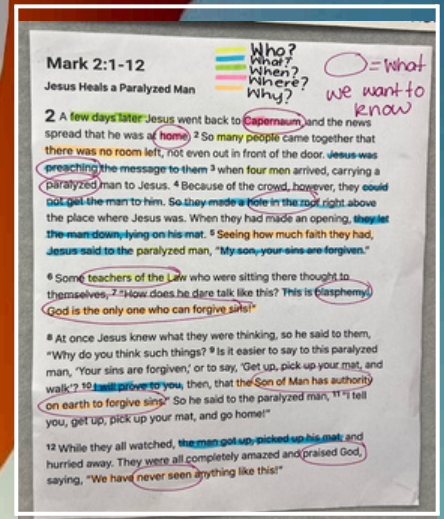 Who?
What?
When?
Where?
Why?
= what
we want to
know
Mark 2:1-12
Jesus Heals a Paralyzed Man
2 A few days later Jesus went back to Capernaum, and the news
spread that he was at home. 2 So many people came together that
there was no room left, not even out in front of the door. Jesus was
preaching the message to them 3 when four men arrived, carrying a
paralyzed man to Jesus. 4 Because of the crowd, however, they could
not get the man to him. So they made a hole in the roof right above
the place where Jesus was. When they had made an opening, they let
the man down, lying on his mat. 5 Seeing how much faith they had,
Jesus said to the paralyzed man, "My son, your sins are forgiven."
6 Some teachers of the Law who were sitting there thought to
themselves, 7 "How does he dare talk like this? This is blasphemy!
God is the only one who can forgive sins!"
8 At once Jesus knew what they were thinking, so he said to them,
"Why do you think such things? 9 Is it easier to say to this paralyzed
man, 'Your sins are forgiven,' or to say, 'Get up, pick up your mat, and
walk'? 10 I will prove to you, then, that the Son of Man has authority
on earth to forgive sins." So he said to the paralyzed man, 11 "I tell
you, get up, pick up your mat, and go home!"
12 While they all watched, the man got up, picked up his mat, and
hurried away. They were all completely amazed and praised God,
saying, "We have never seen anything like this!"